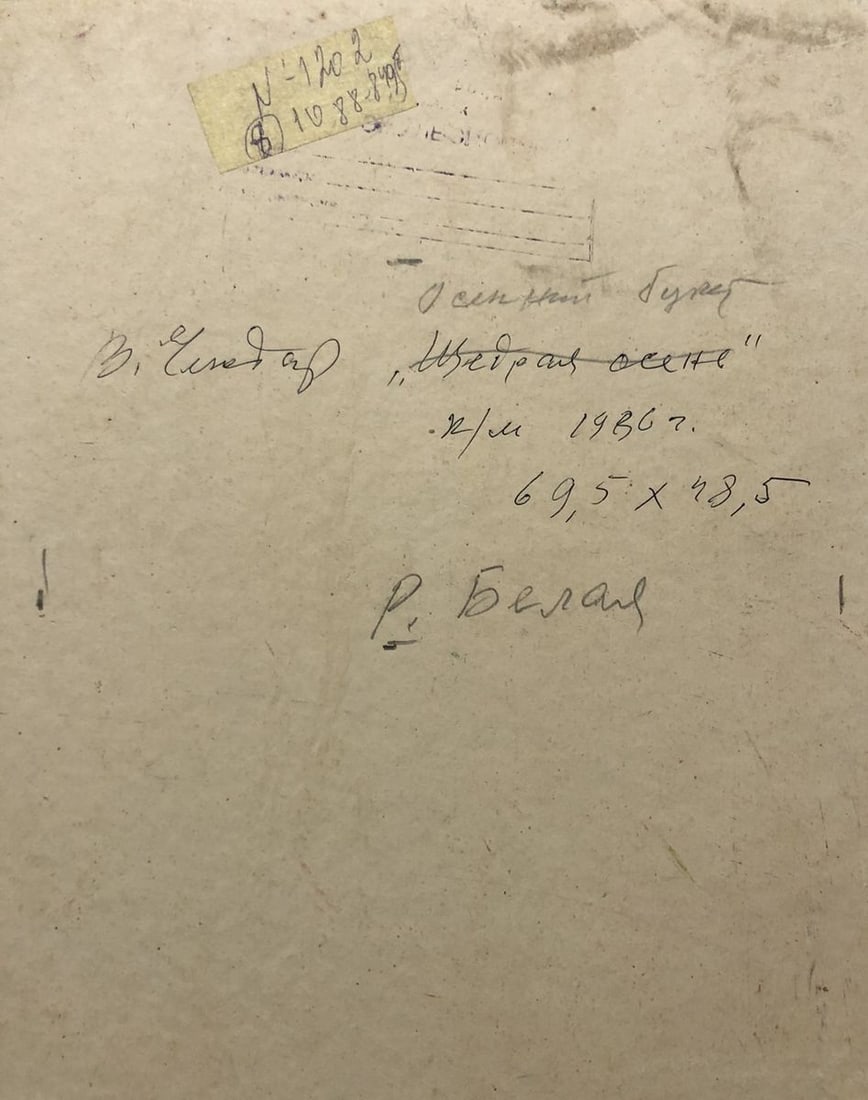 N-1202
10 88
Осенний букет
В. Чеканюк „Щедрая осень"
к/м 1986 г.
69,5 х 48,5
Р. Белая